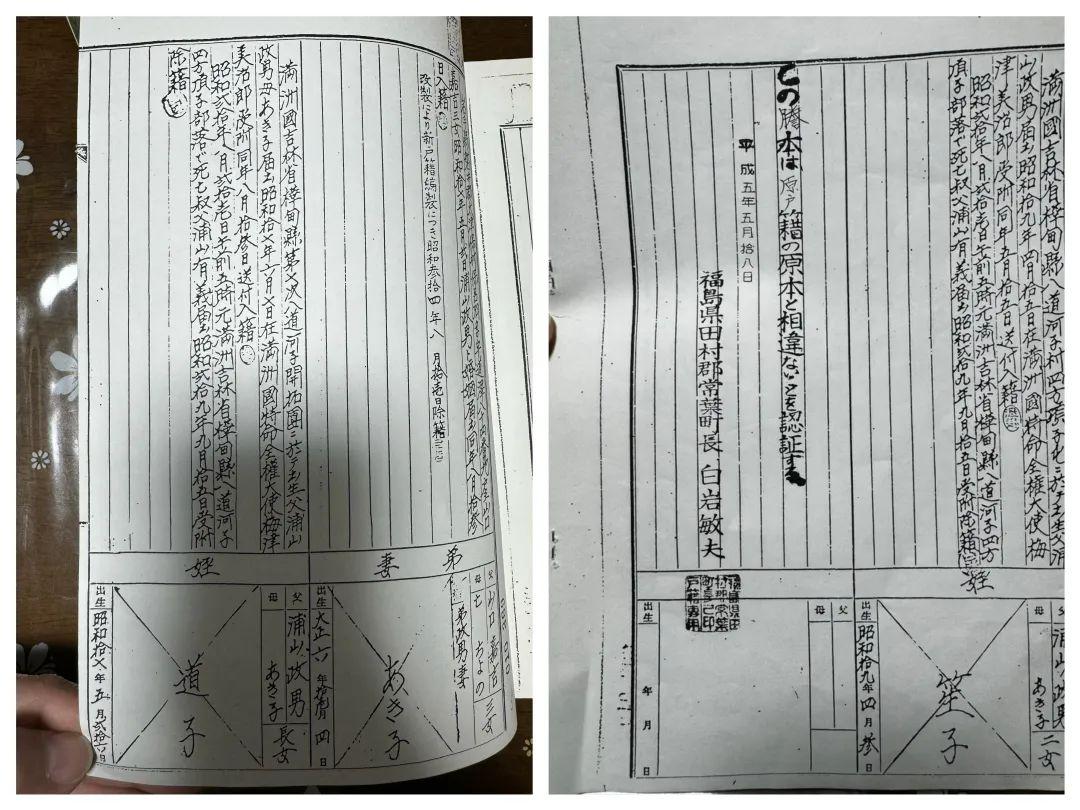 嘉吉三女昭和拾六年五月貳日浦山政男ト婚姻届出同年八月拾參
日入籍
改製により新戸籍編製につき昭和参拾四年八月拾壱日除籍
滿洲國吉林省樺甸縣第七次八道河子開拓團ニ於テ出生父浦山
政男母あき子届出昭和拾七年六月七日在滿洲國特命全權大使梅津
美治郎受附同年八月拾參日送付入籍
昭和貳拾年八月貳拾壱日午前五時元滿洲吉林省樺甸縣八道河子
四方頂子部落デ死亡叔父浦山有義届出昭和貳拾九年九月拾五日受附
除籍
弟
妻
姪
弟政男妻
父 山口嘉吉
母 亡 ちよの
三女
あき子
出生 大正六年拾月四日
父 浦山政男
母 あき子
長女
道子
出生 昭和拾七年五月貳拾六日
滿洲國吉林省樺甸縣八道河子村四方頂子屯ニ於テ出生父浦
山政男届出昭和拾九年四月拾五日在滿洲國特命全權大使梅
津美治郎受附同年五月拾五日送付入籍
昭和貳拾年八月貳拾壱日午前五時元滿洲吉林省樺甸縣八道河子四方
頂子部落デ死亡叔父浦山有義届出昭和貳拾九年九月拾五日受附除籍
姪
父 浦山政男
母 あき子
二女
笙子
出生 昭和拾九年四月參日
この謄本は原戸籍の原本と相違ないことを認証する
平成五年五月拾八日
福島県田村郡常葉町長 白岩敏夫
福島県田
村郡常葉
町長之印
戸籍専用
父
母
出生 年 月 日